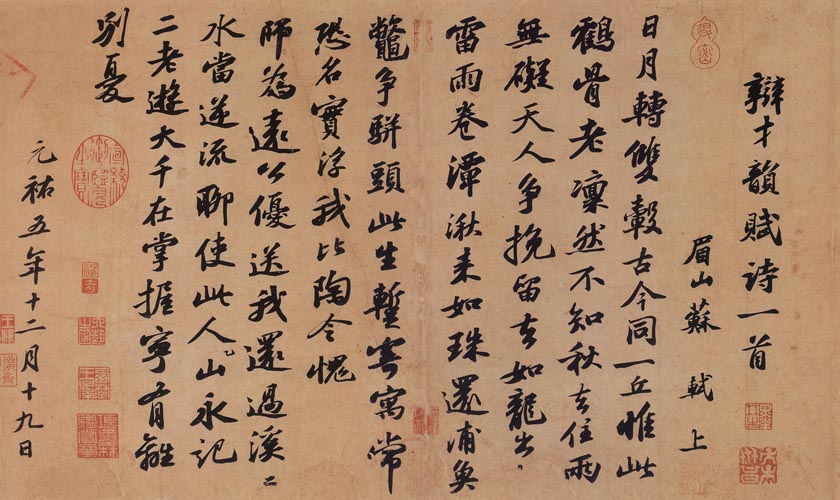 辯才韻賦詩一首
眉山蘇軾上
日月轉雙轂古今同一丘惟此
鶴骨老凜然不知秋去住兩
無礙天人争挽留去如龍出
雷雨卷潭湫来如珠還浦魚
鼈争駢頭此生蹔寄寓常
恐名實浮我比陶令愧
師為遠公優送我還過溪=
水當逆流聊使此人山永記
二老遊大千在掌握寧有離
別憂
元祐五年十二月十九日